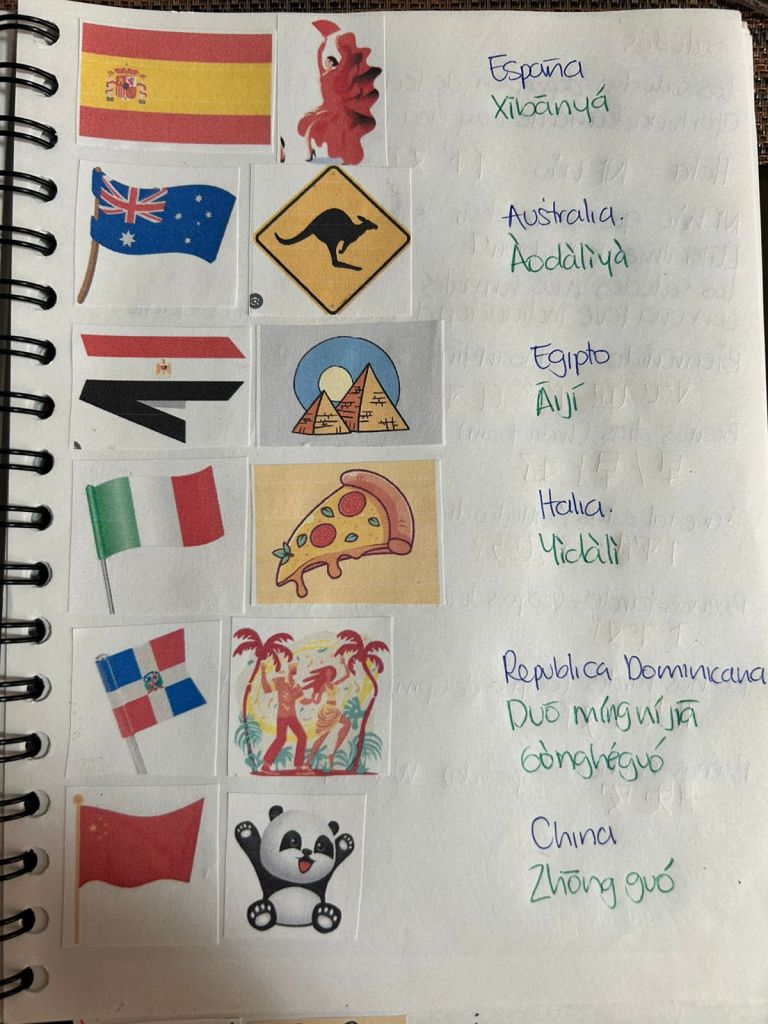 España
Xībānyá
Australia.
Àodàlìyà
Egipto
Āijí
Italia.
Yìdàlì
Republica Dominicana
Duō míngníjiā
Gònghéguó
China
Zhōng guó